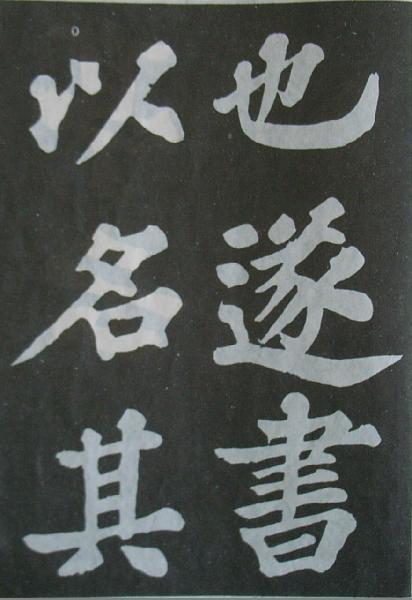 也遂書
以名其